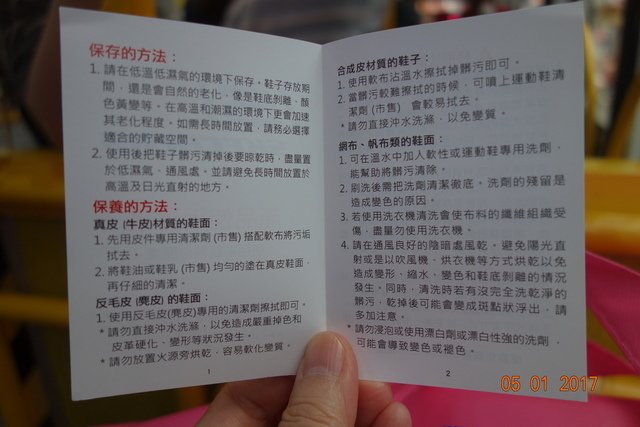 保存的方法：
1. 請在低溫低濕氣的環境下保存。鞋子存放期
間，還是會自然的老化，像是鞋底剝離、顏
色黃變等。在高溫和潮濕的環境下更會加速
其老化程度。如需長時間放置，請務必選擇
適合的貯藏空間。
2. 使用後把鞋子髒污清掉後要晾乾時，盡量置
於低濕氣、通風處。並請避免長時間放置於
高溫及日光直射的地方。
保養的方法：
真皮 (牛皮)材質的鞋面：
1. 先用皮件專用清潔劑 (市售) 搭配軟布將污垢
拭去。
2. 將鞋油或鞋乳 (市售) 均勻的塗在真皮鞋面，
再仔細的清潔。
反毛皮 (麂皮) 的鞋面：
1. 使用反毛皮(麂皮)專用的清潔劑擦拭即可。
* 請勿直接沖水洗滌，以免造成嚴重掉色和
皮革硬化、變形等狀況發生。
* 請勿放置火源旁烘乾，容易軟化變質。
1
合成皮材質的鞋子：
1. 使用軟布沾溫水擦拭掉髒污即可。
2. 當髒污較難擦拭的時候，可噴上運動鞋清
潔劑 (市售) 會較易拭去。
* 請勿直接沖水洗滌，以免變質。
網布、帆布類的鞋面：
1. 可在溫水中加入軟性或運動鞋專用洗劑，
能幫助將髒污清除。
2. 刷洗後需把洗劑清潔徹底。洗劑的殘留是
造成變色的原因。
3. 若使用洗衣機清洗會使布料的纖維組織受
傷，盡量勿使用洗衣機。
4. 請在通風良好的陰暗處風乾。避免陽光直
射或是以吹風機、烘衣機等方式烘乾以免
造成變形、縮水、變色和鞋底剝離的情況
發生。同時，清洗時若有沒完全洗乾淨的
髒污，乾掉後可能會變成斑點狀浮出，請
多加注意。
* 請勿浸泡或使用漂白劑或漂白性強的洗劑，
可能會導致變色或褪色。
2
05 01 2017